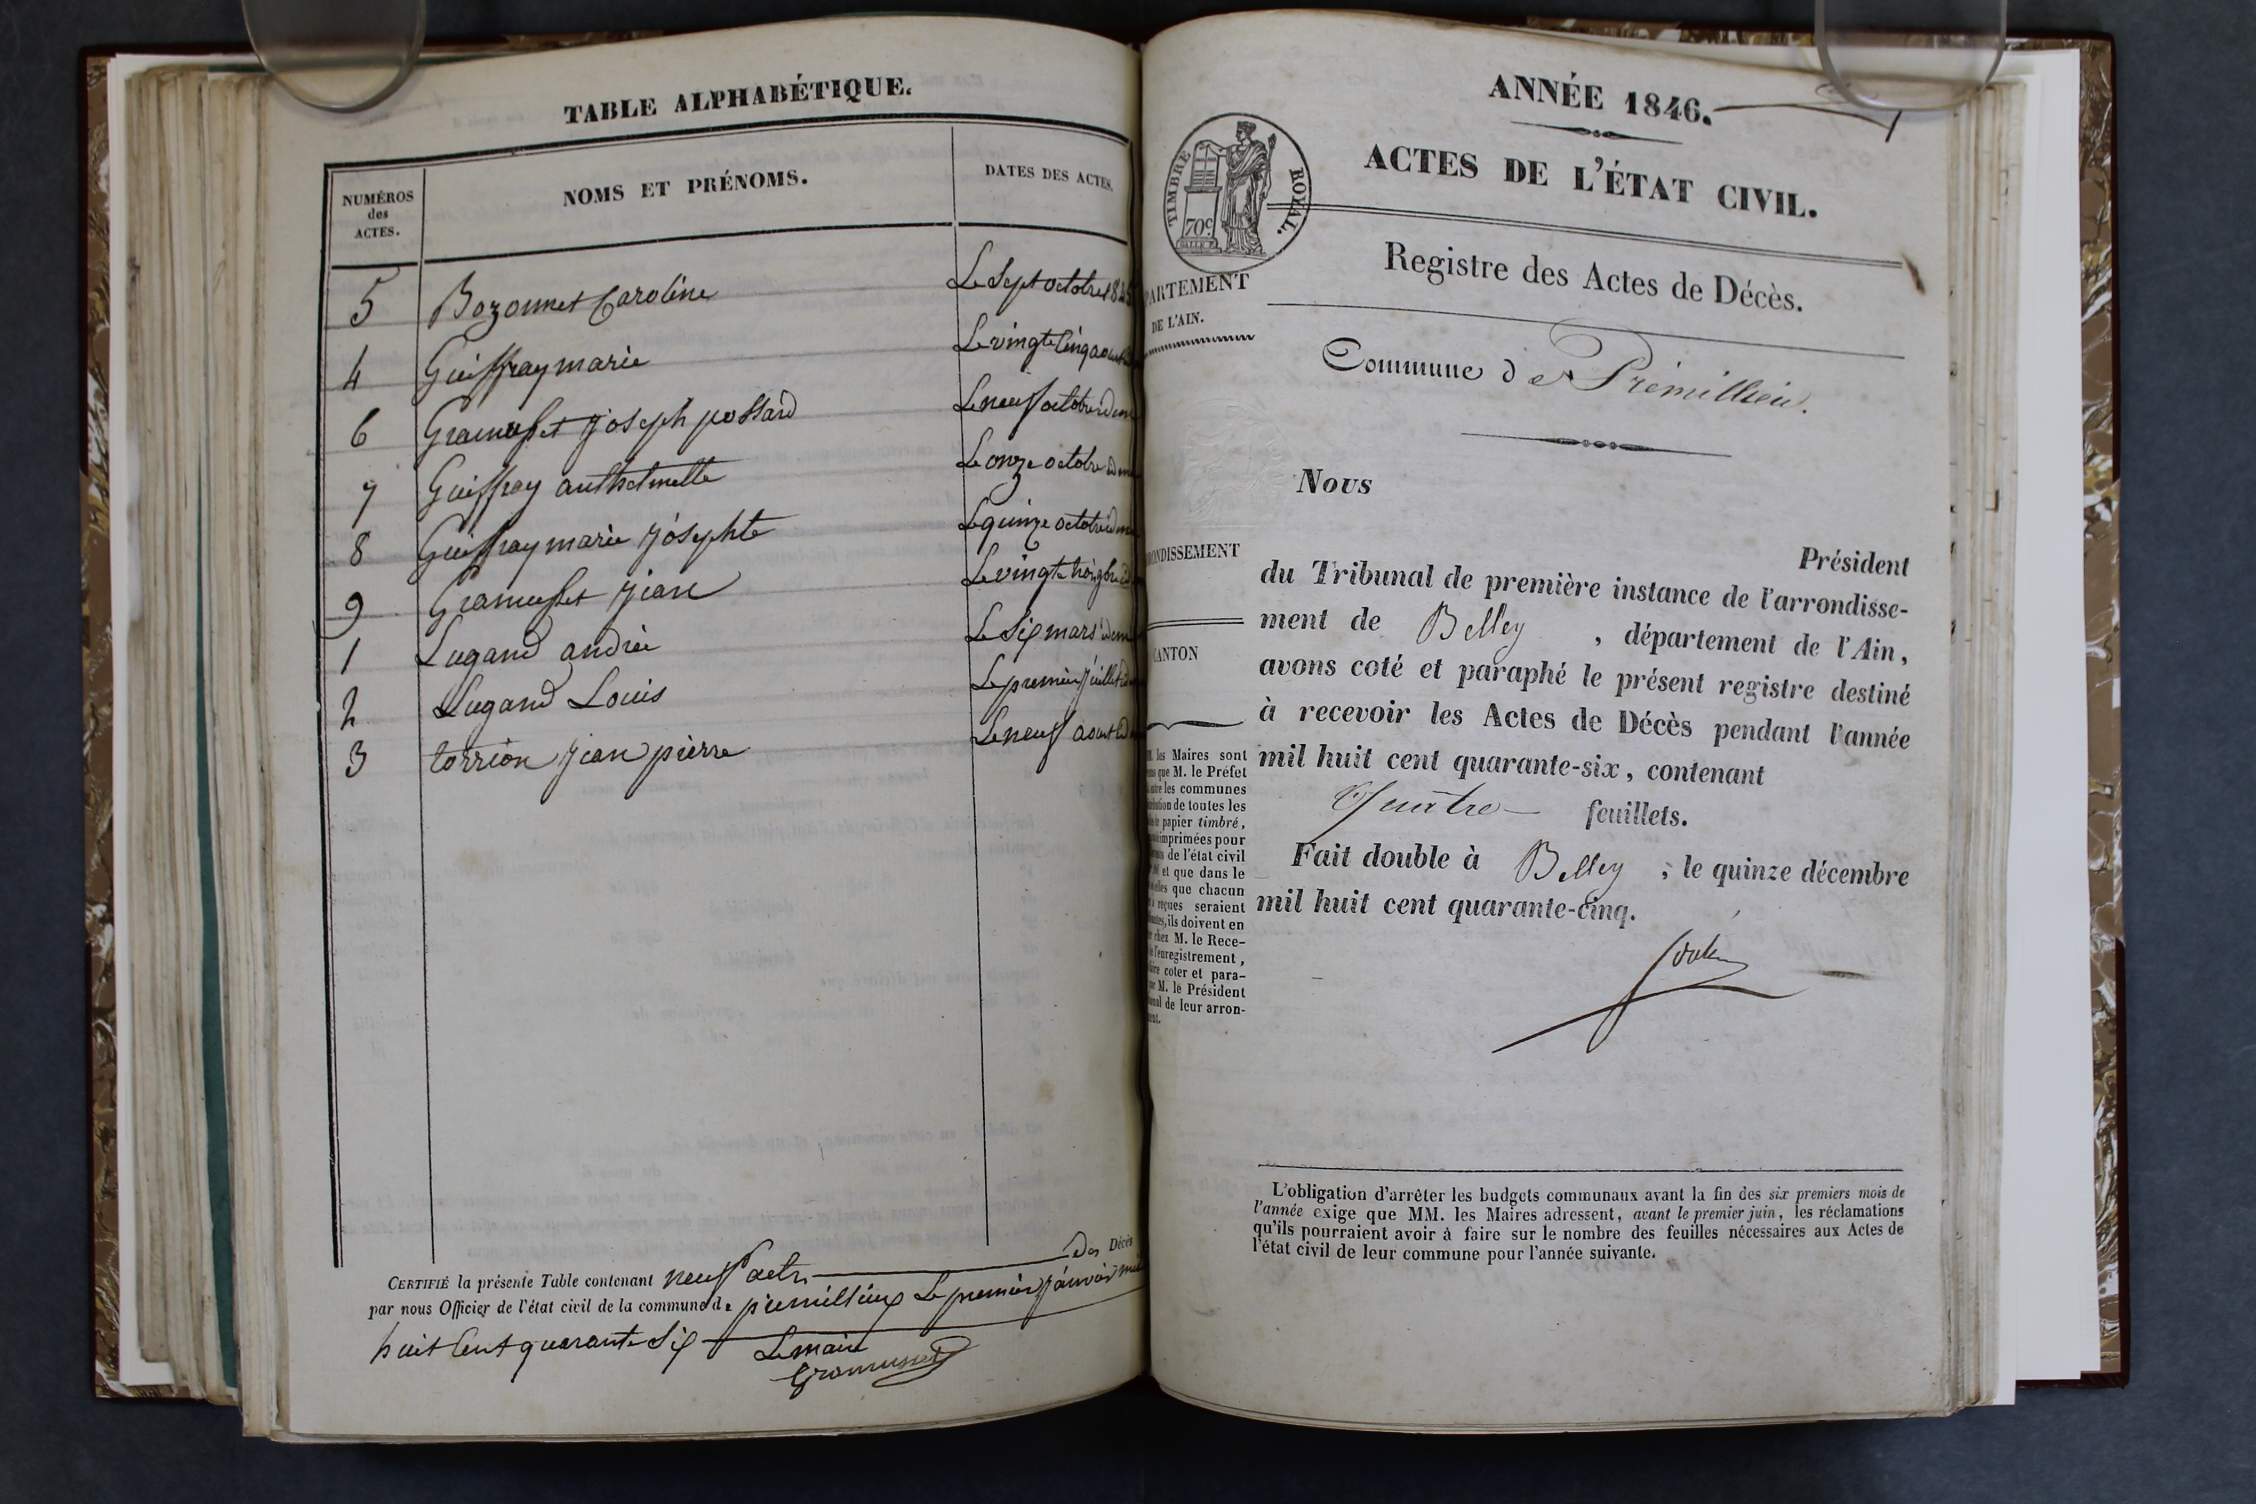 TABLE ALPHABÉTIQUE.
NUMÉROS
des
ACTES.
NOMS ET PRÉNOMS.
DATES DES ACTES.
5 Bozonnet Caroline Le Sept octobre 1845
4 Guiffray marie Le vingt Cinq aout
6 Gramusset Joseph possard Le neuf octobre idem
7 Guiffray anthelmette Le onze octobre idem
8 Guiffray marie Josephte Le quinze octobre idem
9 Gramusset Jean Le vingt
1 Lugand andrée Le Six mars idem
2 Lugand Louis Le premier Juillet
3 torrion Jean pierre Le neuf aout
CERTIFIÉ la présente Table contenant neuf actes des Décès
par nous Officier de l'état civil de la commune de premillieux Le premier Janvier mil
huit Cent quarante Six
Le maire
Gramusset
ANNÉE 1846.
ACTES DE L'ÉTAT CIVIL.
TIMBRE ROYAL.
70c
Registre des Actes de Décès.
PARTEMENT
DE L'AIN.
Commune de Prémillieu.
Nous
Président
ONDISSEMENT
du Tribunal de première instance de l'arrondisse-
ment de Belley , département de l'Ain,
CANTON
avons coté et paraphé le présent registre destiné
à recevoir les Actes de Décès pendant l'année
mil huit cent quarante-six, contenant
Quatre feuillets.
Fait double à Belley , le quinze décembre
mil huit cent quarante-cinq.
les Maires sont
que M. le Préfet
les communes
de toutes les
papier timbré,
imprimées pour
de l'état civil
et que dans le
que chacun
reçues seraient
ils doivent en
chez M. le Rece-
l'enregistrement,
coter et para-
M. le Président
de leur arron-
L'obligation d'arrêter les budgets communaux avant la fin des six premiers mois de
l'année exige que MM. les Maires adressent, avant le premier juin, les réclamations
qu'ils pourraient avoir à faire sur le nombre des feuilles nécessaires aux Actes de
l'état civil de leur commune pour l'année suivante.